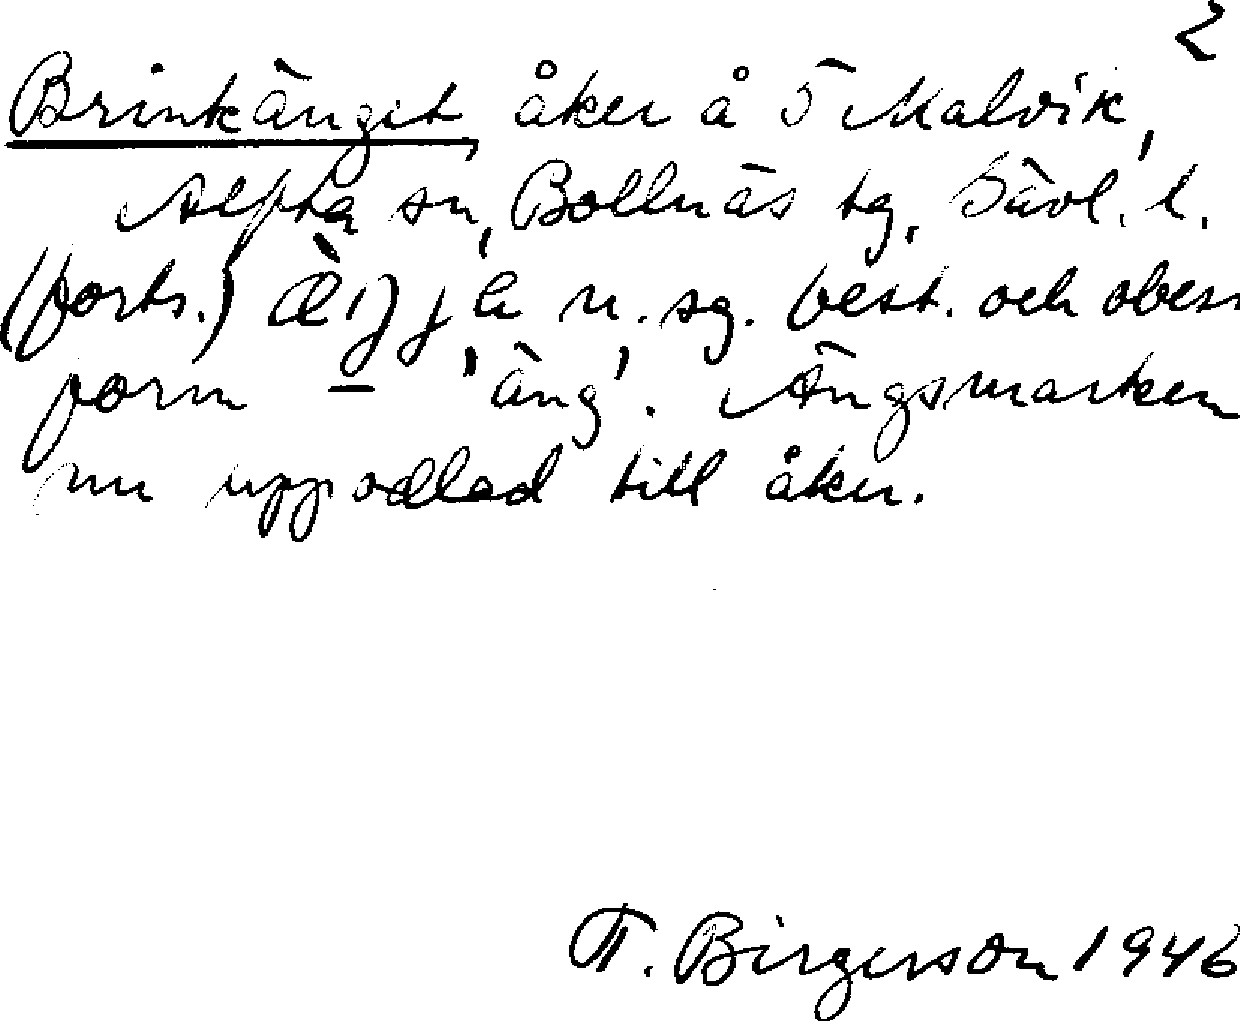 2
Brinkänget, åker å 5 Malvik,
Alfta sn, Bollnäs tg. Gävl. l.
(forts.) n. sg. best. och obest
form – 'äng'. Ängsmarken
nu uppodlad till åker.
T. Birgerson 1946